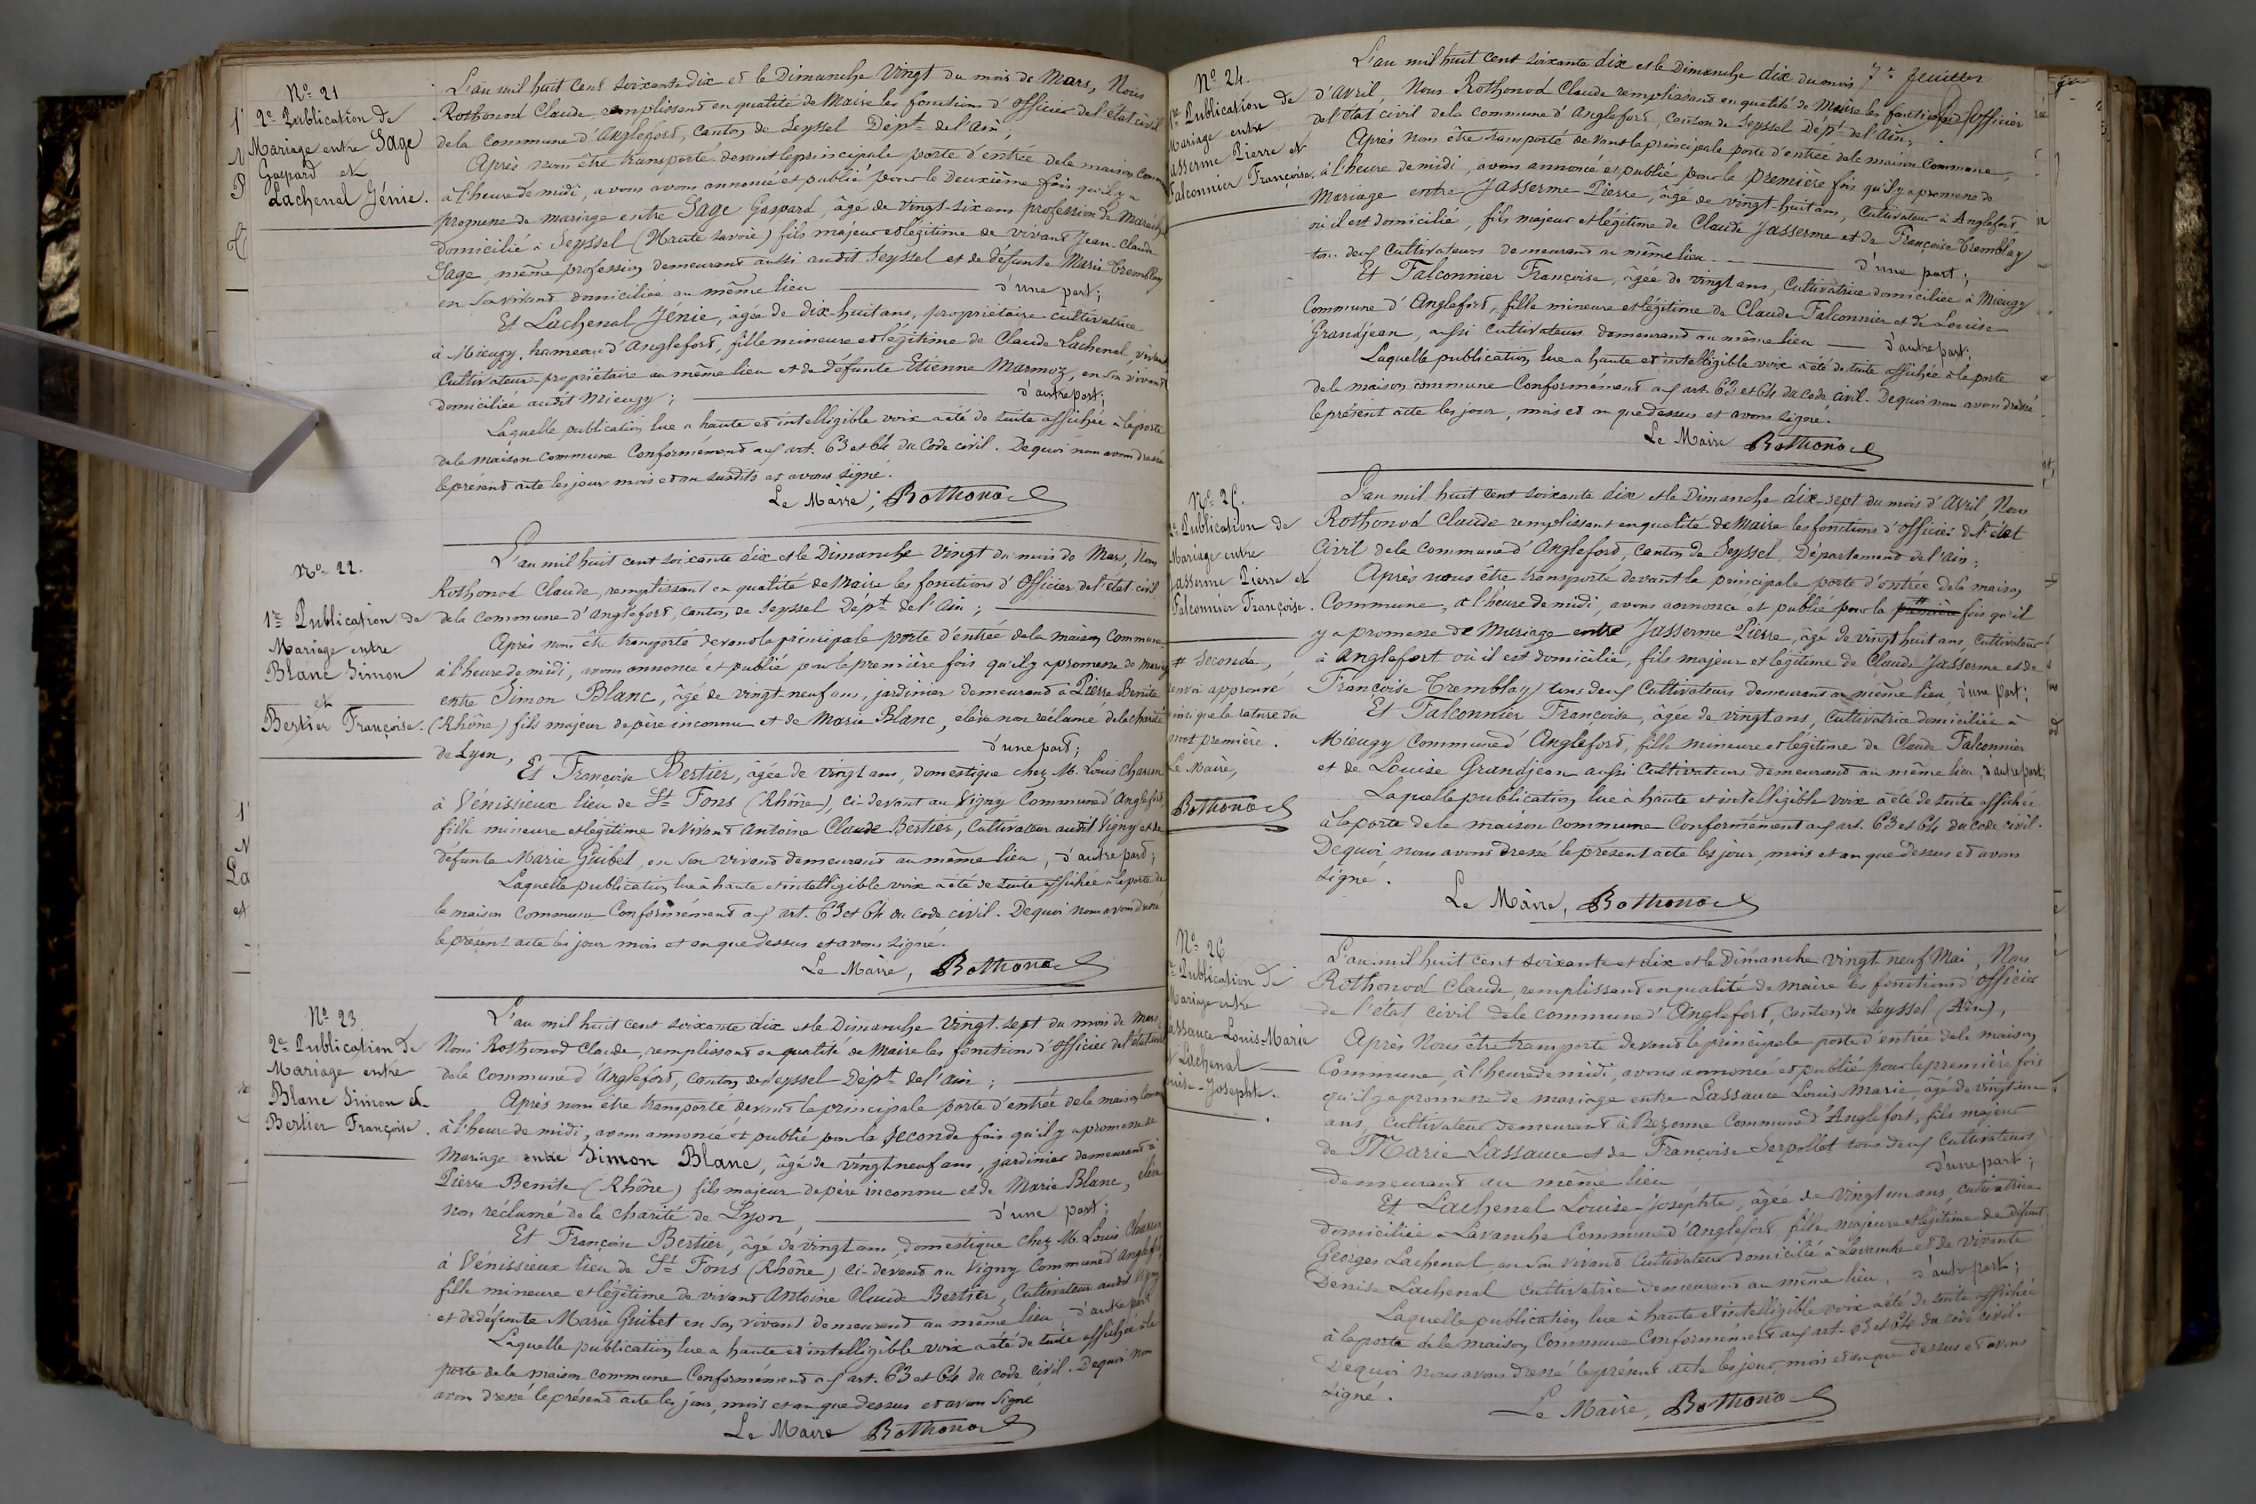 Nº 21
2e Publication de
Mariage entre Sage
Gaspard et
Lachenal Jénie.
L'an mil huit cent soixante dix et le Dimanche Vingt du mois de Mars, Nous
Rothonod Claude, remplissant en qualité de Maire les fonctions d'officier de l'état civil
de la Commune d'Anglefort, canton de Seyssel Dépt de l'Ain;
Après nous être transporté devant la principale porte d'entrée de la maison Comm
à l'heure de midi, a vons avons annoncé et publié pour la Deuxième fois qu'il y a
promesse de mariage entre Sage Gaspard, âgé de vingt-six ans profession de Maréch
domicilié à Seyssel (Haute Savoie) fils majeur et légitime de vivant Jean-Claude
Sage, même profession demeurant aussi audit Seyssel et de défunte Marie Tremblay
en son vivant domiciliée au même lieu d'une part;
Et Lachenal Jénie, âgée de dix-huit ans, propriétaire cultivatrice
à Mieugy, hameau d'Anglefort, fille mineure et légitime de Claude Lachenal, vivant
Cultivateur-propriétaire au même lieu et de défunte Etienne Marmoz, en son vivant
domiciliée audit Mieugy; d'autre part;
Laquelle publication lue a haute et intelligible voix a été de suite affichée à la porte
de la maison commune Conformément aux art. 63 et 64 du Code civil. De quoi nous avons dressé
le présent acte les jour mois et an susdits et avons signé.
Le Maire; Rothonod
Nº 22.
1re Publication de
Mariage entre
Blanc Simon
et
Bertier Françoise.
L'an mil huit cent soixante dix et le Dimanche Vingt du mois de Mars, Nous
Rothonod Claude, remplissant en qualité de Maire les fonctions d'Officier de l'état civil
de la Commune d'Anglefort, canton de Seyssel Dépt de l'Ain;
Après nous être transporté devant la principale porte d'entrée de la maison Commune
à l'heure de midi, avons annoncé et publié pour la première fois qu'il y a promesse de mariage
entre Simon Blanc, âgé de vingt neuf ans, jardinier demeurant à Pierre Benite
(Rhône) fils majeur de père inconnu et de Marie Blanc, élève non réclamé de la charité
de Lyon, d'une part;
Et Françoise Bertier, âgée de vingt ans, domestique chez M. Louis Charon
à Vénissieux lieu de St Fons (Rhône), ci-devant au Vigny Commune d'Anglefort,
fille mineure et légitime de vivant Antoine Claude Bertier, Cultivateur audit Vigny et de
défunte Marie Guibet, en son vivant demeurant au même lieu, d'autre part;
Laquelle publication lue à haute et intelligible voix a été de suite affichée à la porte de
la maison commune Conformément aux art. 63 et 64 du code civil. De quoi nous avons dressé
le présent acte les jour mois et an que dessus et avons signé.
Le Maire, Rothonod
Nº 23
2e Publication de
Mariage entre
Blanc Simon et
Bertier Françoise.
L'an mil huit cent soixante dix et le Dimanche Vingt-sept du mois de Mars
Nous Rothonod Claude, remplissant en qualité de Maire les fonctions d'officier de l'état civil
de la Commune d'Anglefort, canton de Seyssel Dépt de l'Ain;
Après nous être transporté devant la principale porte d'entrée de la maison Comm
à l'heure de midi, avons annoncé et publié pour la seconde fois qu'il y a promesse de
Mariage entre Simon Blanc, âgé de vingt neuf ans, jardinier demeurant à
Pierre Benite (Rhône) fils majeur de père inconnu et de Marie Blanc, élève
non réclamé de la charité de Lyon, d'une part;
Et Françoise Bertier, âgé de vingt ans, domestique chez M. Louis Charon
à Vénissieux lieu de St Fons (Rhône) ci-devant au Vigny Commune d'Anglefort,
fille mineure et légitime de vivant Antoine Claude Bertier, Cultivateur audit Vigny
et de défunte Marie Guibet en son vivant demeurant au même lieu, d'autre part
Laquelle publication lue a haute et intelligible voix a été de suite affichée à la
porte de la maison commune Conformément aux art. 63 et 64 du code civil. De quoi nous
avons dressé le présent acte les jour, mois et an que dessus et avons signé
Le Maire Rothonod
7e feuillet
Nº 24.
1re Publication de
Mariage entre
Jasserme Pierre et
Falconnier Françoise.
L'an mil huit cent soixante dix et le Dimanche dix du mois
d'avril, Nous Rothonod Claude remplissant en qualité de Maire les fonctions d'Officier
de l'état civil de la commune d'Anglefort, canton de Seyssel Dépt de l'Ain,
Après nous être transporté devant la principale porte d'entrée de la maison Commune,
à l'heure de midi, avons annoncé et publié pour la première fois qu'il y a promesse de
Mariage entre Jasserme Pierre, âgé de vingt-huit ans, Cultivateur à Anglefort,
où il est domicilié, fils majeur et légitime de Claude Jasserme et de Françoise Tremblay
tous deux Cultivateurs demeurant au même lieu. d'une part;
Et Falconnier Françoise, âgée de vingt ans, Cultivatrice domiciliée à Mieugy
Commune d'Anglefort, fille mineure et légitime de Claude Falconnier et de Louise
Grandjean, aussi Cultivateurs demeurant au même lieu d'autre part;
Laquelle publication lue a haute et intelligible voix a été de suite affichée à la porte
de la maison commune Conformément aux art. 63 et 64 du Code civil. De quoi nous avons dressé
le présent acte les jour, mois et an que dessus et avons signé.
Le Maire Rothonod
Nº 25.
2e Publication de
Mariage entre
Jasserme Pierre et
Falconnier Françoise.
# Seconde,
renvoi approuvé
ainsi que la rature du
mot première.
Le Maire,
Rothonod
L'an mil huit cent soixante dix et le Dimanche dix-sept du mois d'Avril Nous
Rothonod Claude remplissant en qualité de Maire les fonctions d'officier de l'état
Civil de la Commune d'Anglefort, canton de Seyssel, Département de l'Ain;
Après nous être transporté devant la principale porte d'entrée de la maison
Commune, à l'heure de midi, avons annoncé et publié pour la première # fois qu'il
y a promesse de Mariage entre Jasserme Pierre, âgé de vingt huit ans, Cultivateur
à Anglefort où il est domicilié, fils majeur et légitime de Claude Jasserme et de
Françoise Tremblay tous deux Cultivateurs demeurant au même lieu d'une part;
Et Falconnier Françoise, âgée de vingt ans, Cultivatrice domiciliée à
Mieugy Commune d'Anglefort, fille mineure et légitime de Claude Falconnier
et de Louise Grandjean aussi Cultivateurs demeurant au même lieu, d'autre part;
Laquelle publication lue à haute et intelligible voix a été de suite affichée
à la porte de la maison commune Conformément aux art. 63 et 64 du code civil.
De quoi nous avons dressé le présent acte les jour, mois et an que dessus et avons
signé.
Le Maire, Rothonod
Nº 26
Publication de
Mariage entre
Lassauce Louis-Marie
et Lachenal
Louise-Josephte.
L'an mil huit cent soixante et dix et le Dimanche vingt neuf Mai, Nous
Rothonod Claude, remplissant en qualité de maire les fonctions d'officier
de l'état civil de la commune d'Anglefort, canton de Seyssel (Ain),
Après Nous être transporté devant la principale porte d'entrée de la maison
Commune, à l'heure de midi, avons annoncé et publié pour la première fois
qu'il y a promesse de mariage entre Lassauce Louis Marie, âgé de vingt un
ans, Cultivateur demeurant à Bezonne Commune d'Anglefort, fils majeur
de Marie Lassauce et de Françoise Serpollet tous deux Cultivateurs
demeurant au même lieu d'une part;
Et Lachenal Louise-Joséphte, âgée de vingt un ans, cultivatrice
domiciliée à Lavanche Commune d'Anglefort, fille majeure et légitime de défunt
Georges Lachenal en son vivant Cultivateur domicilié à Lavanche et de vivante
Denise Lachenal cultivatrice demeurant au même lieu, d'autre part;
Laquelle publication lue à haute et intelligible voix a été de suite affichée
à la porte de la maison Commune Conformément aux art. 63 et 64 du code civil.
De quoi Nous avons dressé le présent acte les jour, mois et an que dessus et avons
signé.
Le Maire, Rothonod